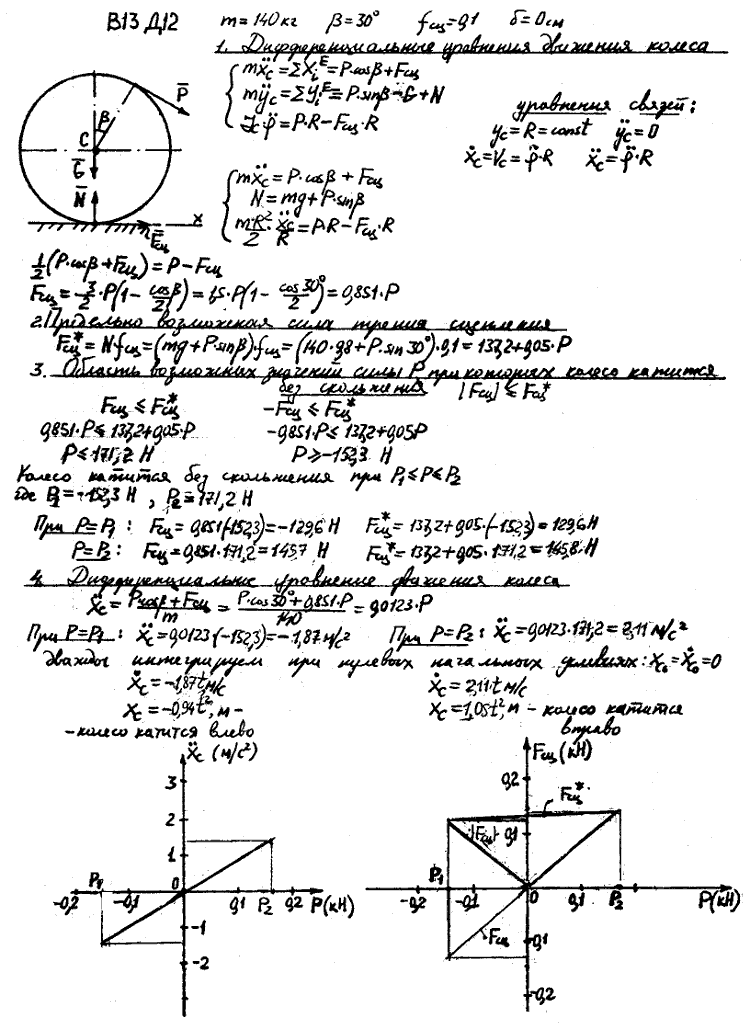 В13 Д12 m=140кг β=30° fсц=0,1 δ=0см
1. Дифференциальные уравнения движения колеса
mẍc=ΣXiᴱ=P·cosβ+Fсц
mÿc=ΣYiᴱ=-P·sinβ-G+N
Jc·φ̈=P·R-Fсц·R
уравнения связей:
yc=R=const ÿc=0
ẋc=Vc=φ̇·R ẍc=φ̈·R
mẍc=P·cosβ+Fсц
N=mg+P·sinβ
mR²/2·ẍc/R=P·R-Fсц·R
P̄
β
C
Ḡ
N̄
x
F̄сц
1/2(P·cosβ+Fсц)=P-Fсц
Fсц=2/3·P(1-cosβ/2)=1,5·P(1-cos30°/2)=0,851·P
2. Предельно возможная сила трения сцепления
Fсц*=N·fсц=(mg+P·sinβ)·fсц=(140·9,8+P·sin30°)·0,1=137,2+0,05·P
3. Область возможных значений силы P при которых колесо катится
без скольжения |Fсц|≤Fсц*
Fсц≤Fсц* -Fсц≤Fсц*
0,851·P≤137,2+0,05·P -0,851·P≤137,2+0,05P
P≤171,2 Н P≥-152,3 Н
Колесо катится без скольжения при P₁≤P≤P₂
где P₁=-152,3 Н, P₂=171,2 Н
При P=P₁: Fсц=0,851(-152,3)=-129,6 Н Fсц*=137,2+0,05·(-152,3)=129,6Н
P=P₂: Fсц=0,851·171,2=145,7 Н Fсц*=137,2+0,05·171,2=145,8Н
4. Дифференциальное уровнение движения колеса
ẍc=(P·cosβ+Fсц)/m=(P·cos30°+0,851·P)/140=0,0123·P
При P=P₁: ẍc=0,0123·(-152,3)=-1,87м/с² При P=P₂: ẍc=0,0123·171,2=2,11м/с²
дважды интегрируем при нулевых начальных условиях: x₀=ẋ₀=0
ẋc=-1,87t,м/с ẋc=2,11t м/с
xc=-0,94t²,м- xc=1,05t²,м - колесо катится
-колесо катится влево вправо
ẍc (м/с²)
3
2
1
0
-1
-2
P₁
-0,2 -0,1 0,1 P₂ 0,2 P(кН)
Fсц(кН)
0,2
Fсц*
|Fсц|
0,1
P₁
-0,2 -0,1 0 0,1 P₂ P(кН)
Fсц
-0,1
-0,2